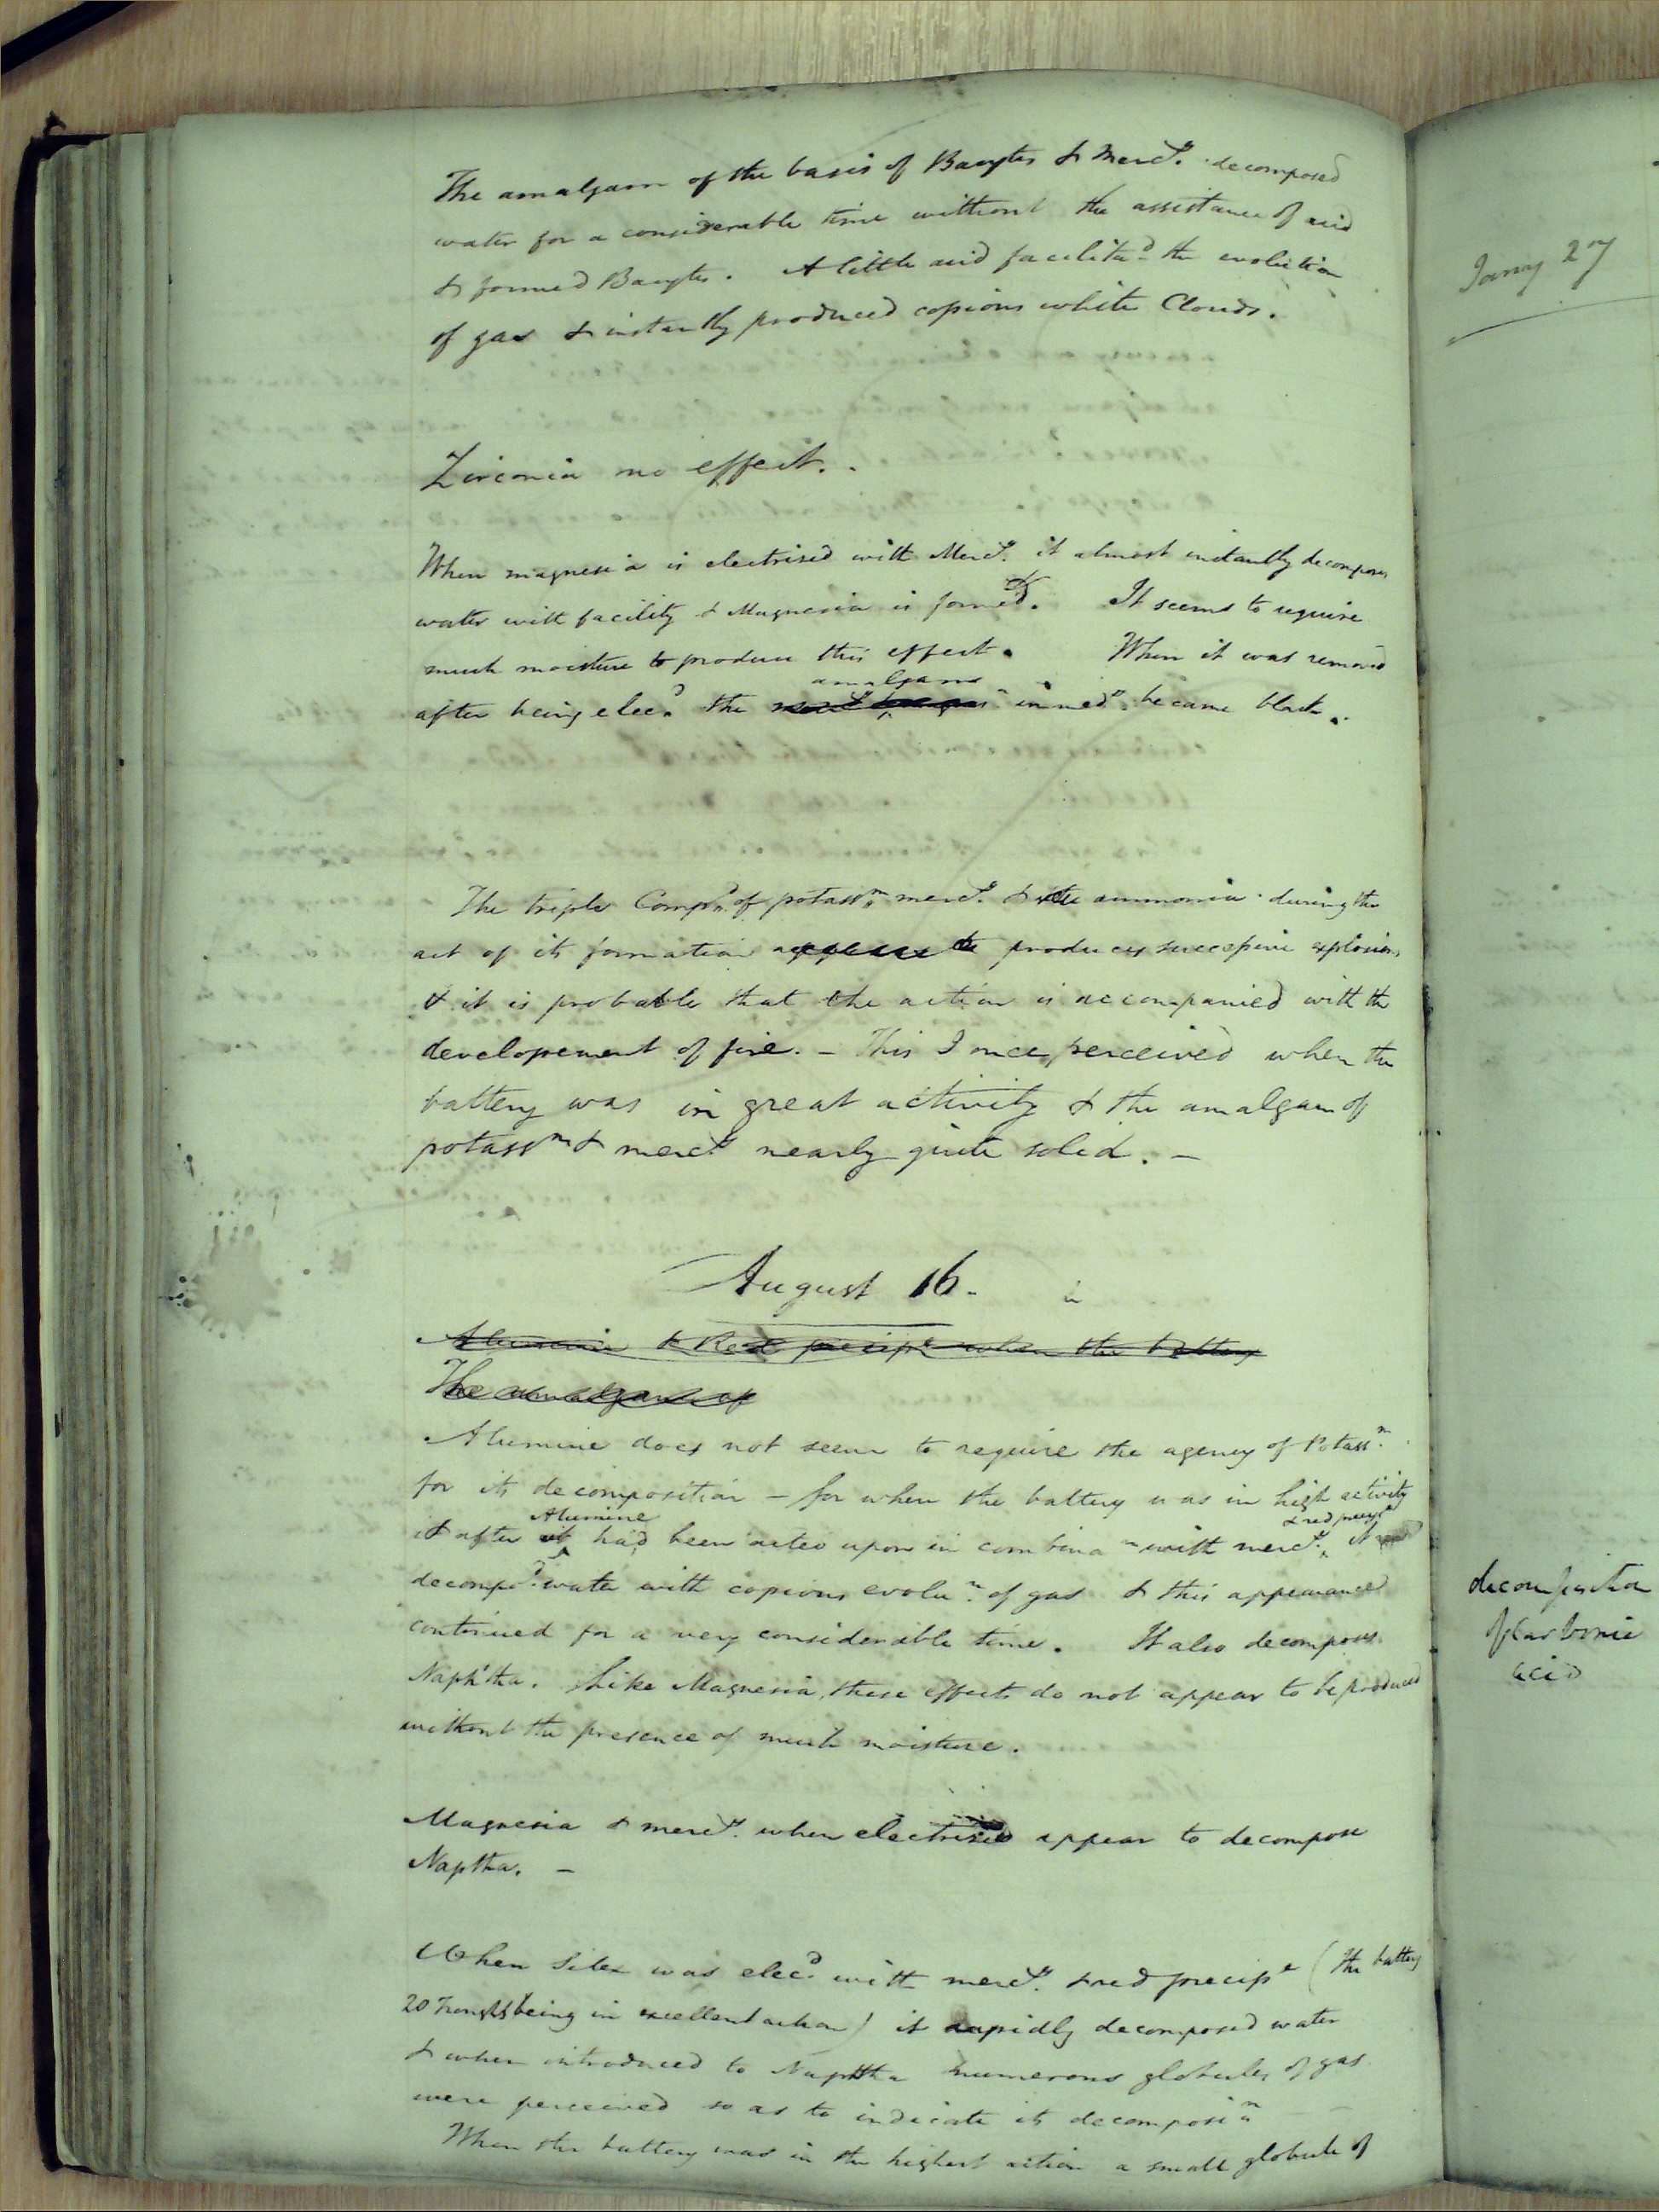 The amalgam of the basis of Barytes & Mercy. decomposed
water for a considerable time without the assistance of acid
& formed Barytes. A little acid facilitad the evolution
of gas & instantly produced copious white Clouds.
Zirconia no effect.
When magnesia is electrised with Mercy. it almost instantly decomposes
water with facility & Magnesia is formed. It seems to require
much moisture to produce this effect. When it was removed
amalgam
after being elecd. the immedy. became black.
The triple Compnd. of potassm. mercy. & the ammonia during the
act of its formation appears to produces successive explosions
& it is probable that the action is accompanied with the
developement of fire. - This I once perceived when the
battery was in great activity & the amalgam of
potassm & mercy nearly quite solid. -
August 16.
in
Alumine & Red precipe when the battery
The amalgam of
Alumine does not seem to require the agency of Potassm.
for its decomposition - for when the battery was in high activity
Alumine & red precipe
& after it had been acted upon in combinan with mercy. it
decompd. water with copious evolun. of gas & this appearance
continued for a very considerable time. It also decomposes
Naphtha. Like Magnesia, these effects do not appear to be produced
without the presence of much moisture.
Magnesia & mercy. when electrised appear to decompose
Naptha. -
When Silex was elecd. with mercy. & red precipe (the battery
20 Troughs being in excellent action) it rapidly decomposed water
& when introduced to Naphtha numerous globules of gas
were perceived so as to indicate its decomposin
When the battery was in the highest action a small globule of
Jany 27
decomposition
of carbonic
acid